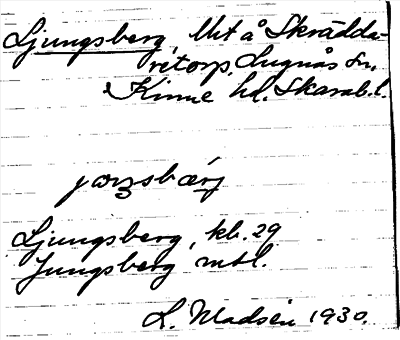 Ljungsberg, Uut å Skrädda-
retorp, Lugnås sn,
Kinne hd. Skarab. l.
Ljungsberg, kb. 29
Jungsberg mtl.
L. Madsén 1930.